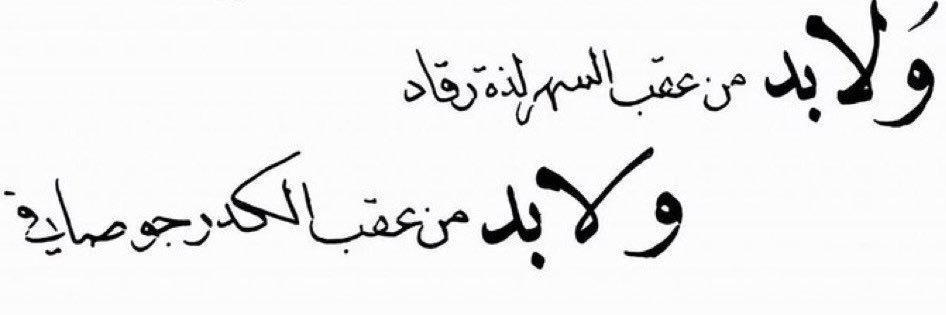 وَلابد من عقب السهر لذة رقاد
ولابد من عقب الكدر جو صافي